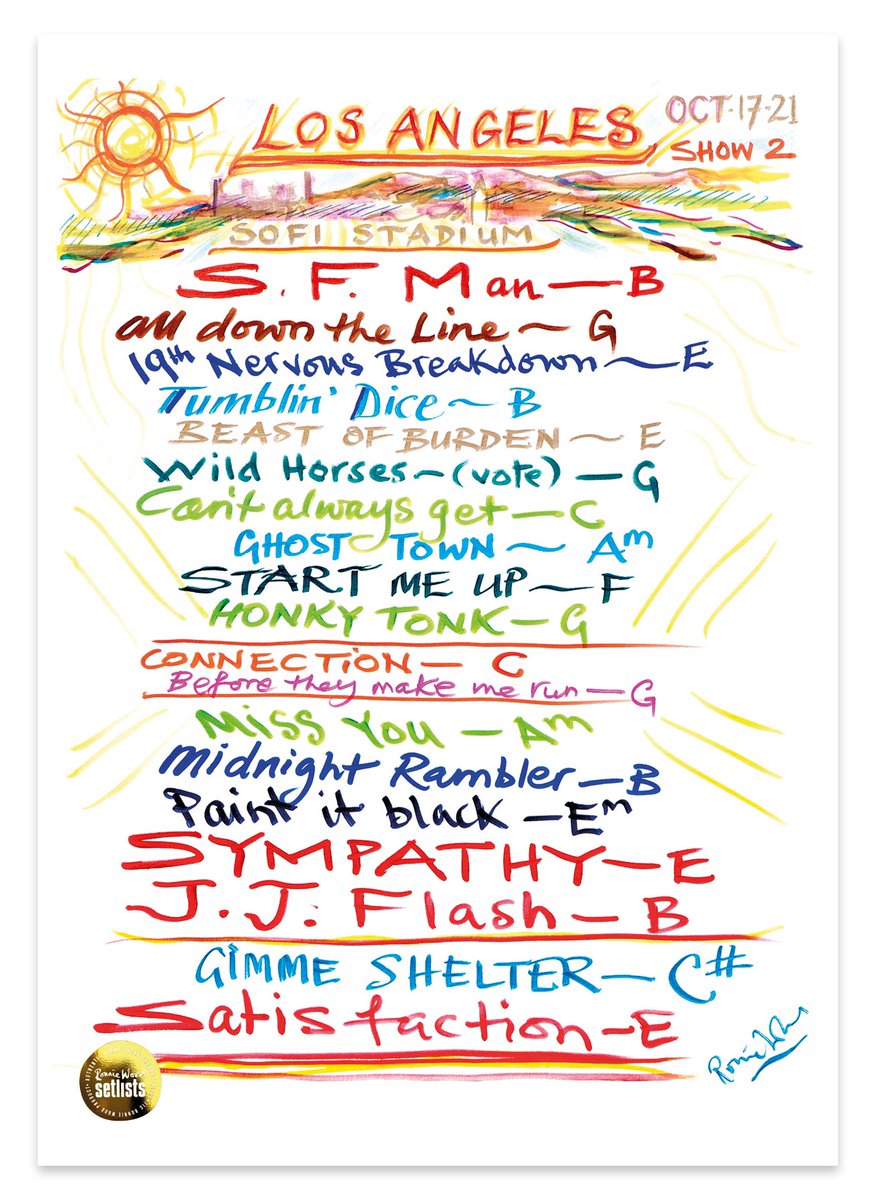 LOS ANGELES
OCT·17·21
SHOW 2
SOFI STADIUM
S.F. Man — B
all down the Line ~ G
19th Nervous Breakdown ~ E
Tumblin' Dice ~ B
BEAST OF BURDEN ~ E
Wild Horses ~ (vote) — G
Can't always get — C
GHOST TOWN ~ Am
START ME UP ~ F
HONKY TONK — G
CONNECTION — C
Before they make me run — G
Miss You — Am
Midnight Rambler — B
Paint it black — Em
SYMPATHY — E
J.J. Flash — B
GIMME SHELTER — C#
Satisfaction — E
Ronnie Wood
setlists